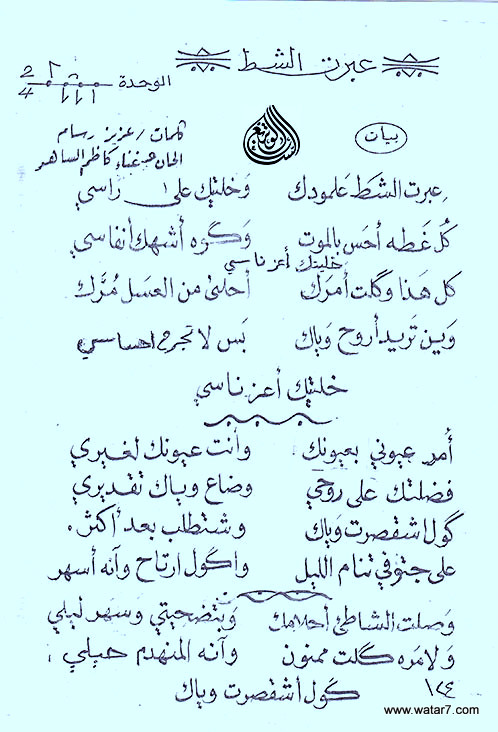 عبرت الشط
الوحدة 2/4
كلمات / عزيز رسام
الحان وغناء كاظم الساهر
بيات
عبرت الشط علمودك وخليتك على راسي
كل غطه أحس بالموت وگوه أشهك أنفاسي
خليتك أعز ناسي
كل هذا وگلت أمرك أحلى من العسل مرك
وين تريد أروح وياك بس لا تجرح احساسي
خلتيك أعز ناسي
أمر عيوني بعيونك وأنت عيونك لغيري
فضلتك على روحي وضاع وياك تقديري
گول اشقصرت وياك وشتطلب بعد أكثر
على جتوفي تنام الليل واگول ارتاح وآنه أسهر
وصلت الشاطئ أحلامك وبتضحيتي وسهر ليلي
ولا مره گلت ممنون وآنه المنهدم حيلي
گول أشقصرت وياك
١٢٤
www.watar7.com